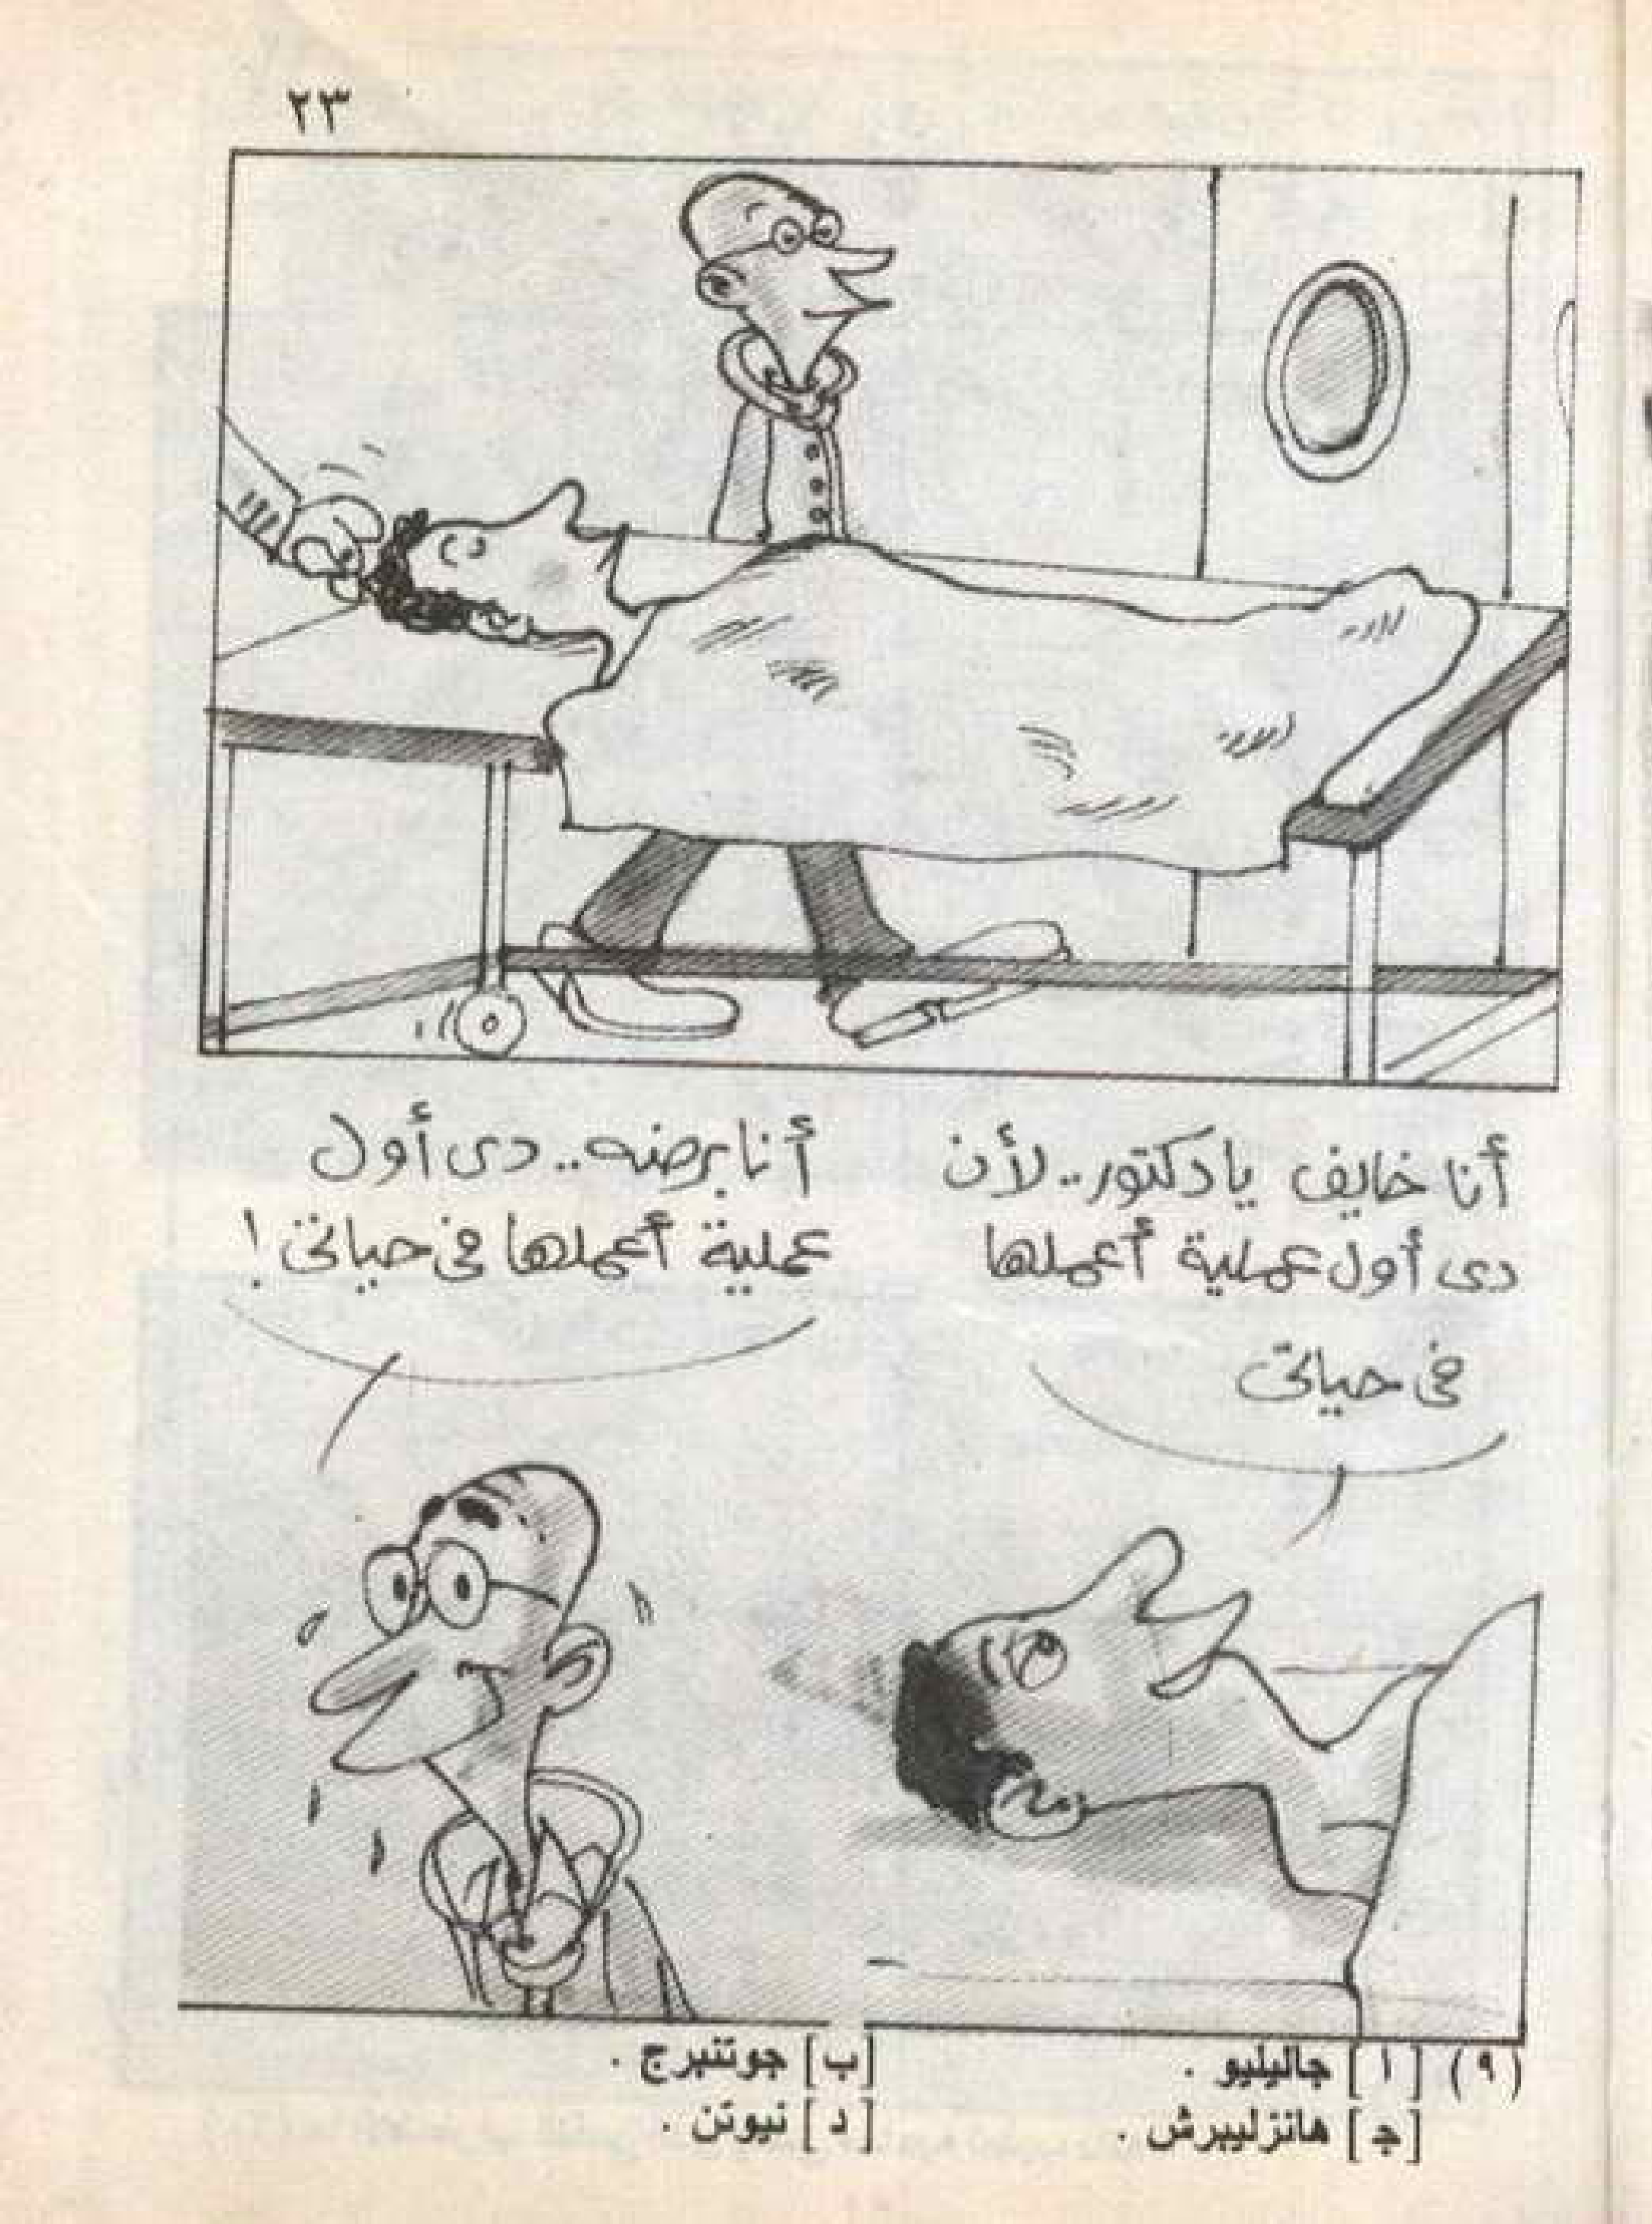 ٢٣
أنا خايف يا دكتور.. لأن
دى أول عملية أعملها
فى حياتى
أنا برضه.. دى أول
عملية أعملها فى حياتى !
(٩) [ ا ] جاليليو .
[ب] جوتنبرج .
[جـ] هانزليبرش .
[ د ] نيوتن .